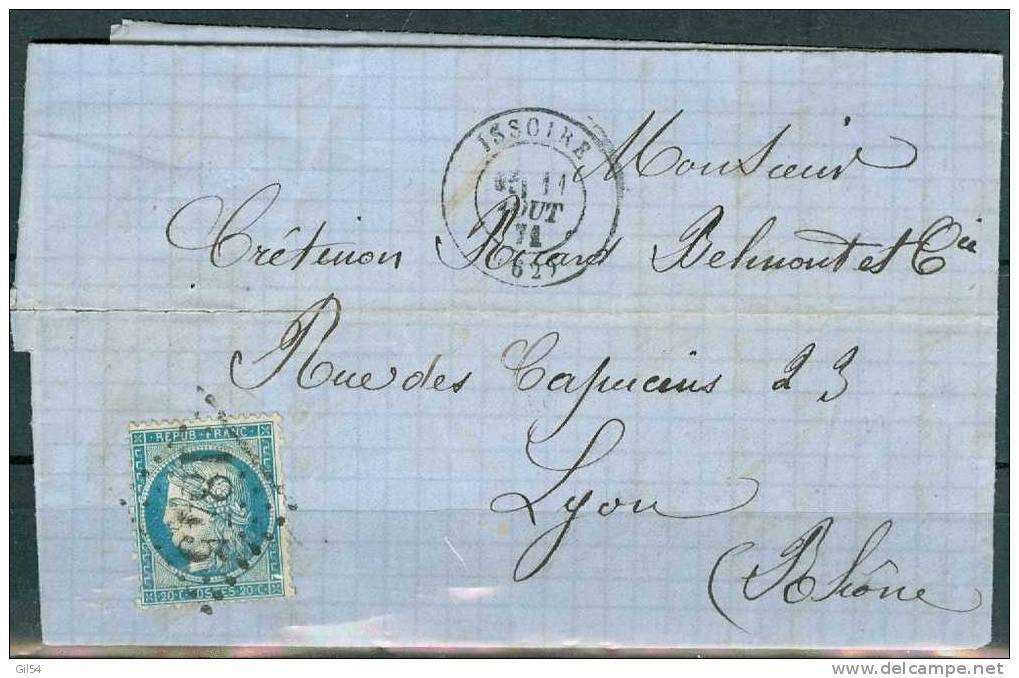 ISSOIRE
11
AOUT
71
(62)
Monsieur
Crétinon Ricard Belmont et Cie
Rue des Capucins 23
Lyon
(Rhône
REPUB·FRANC·
20·C·POSTES·20·C·
Gil54
www.delcampe.net